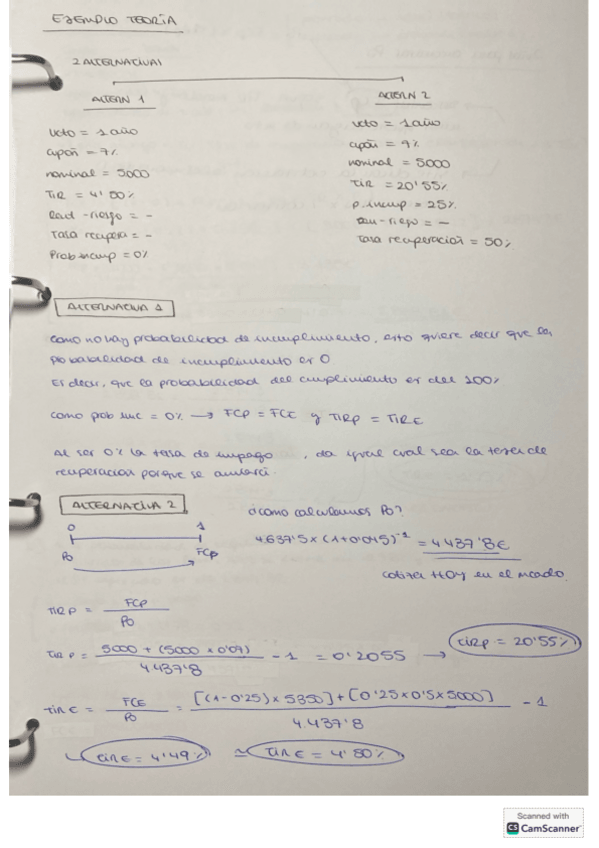 EJEMPLO TEORÍA
2 ALTERNATIVAS
ALTERN 1
Vcto = 1 año
cupón = 7%
nominal = 5000
TIR = 4'50%
Rad - riesgo = -
Tasa recupera = -
Prob incump = 0%
ALTERN 2
Vcto = 1 año
cupón = 7%
nominal = 5000
TIR = 20'55%
p. incump = 25%
- riesgo = -
Tasa recuperación = 50%
ALTERNATIVA 1
como no hay probabilidad de incumplimiento, esto quiere decir que la
probabilidad de incumplimiento es 0
Es decir, que la probabilidad del cumplimiento es del 100%
como pob inc = 0% → FCP = FCE y TIRP = TIRE
Al ser 0% la tasa de impago , da igual cual sea la tasa de
recuperacion porque se anulará.
ALTERNATIVA 2
¿cómo calculamos Po?
0 1
Po FCP
4.637'5 × (1+0'045)⁻¹ = 4.437'8€
cotiza HOY en el mercado.
TIRP = FCP / Po
TIR P = 5000 + (5000 × 0'07) / 4.437'8 - 1 = 0'2055 → TIRP = 20'55%
TIR E = FCE / Po = [(1-0'25) × 5350] + [0'25 × 0'5 × 5000] / 4.437'8 - 1
TIRE = 4'49% ≃ TIR E = 4'50%
Scanned with
CS CamScanner